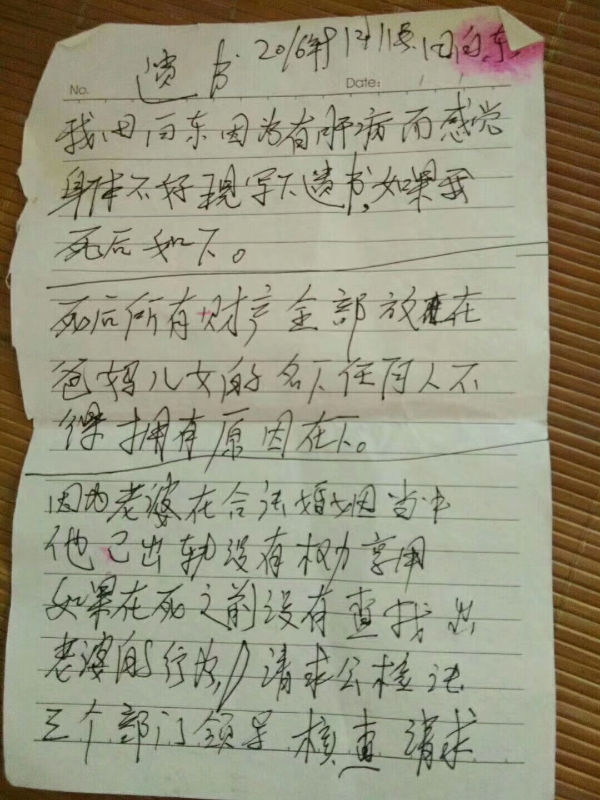 遗书 2016年12月1号 田向东
No. Date:
我田向东因为有肝病而感觉
身体不好现写下遗书,如果我
死后如下。
死后所有财产全部放在
爸妈儿女的名下任何人不
得拥有原因在下。
因为老婆在合法婚姻当中
他已出轨没有权力享用
如果在死之前没有查找出
老婆的行为,请求公检法
三个部门领导核查请求